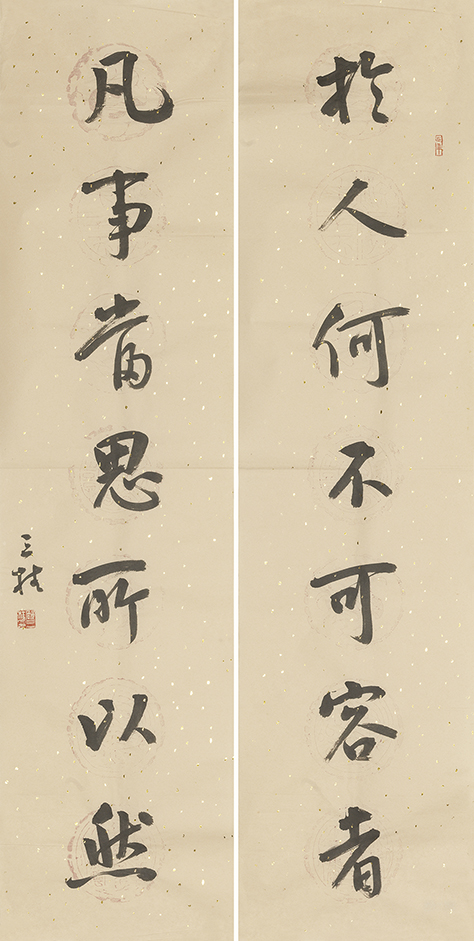 於人何不可容者
凡事當思所以然
三桂